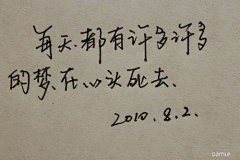 每天都有许多许多
的梦在心头死去.
2010.8.2.